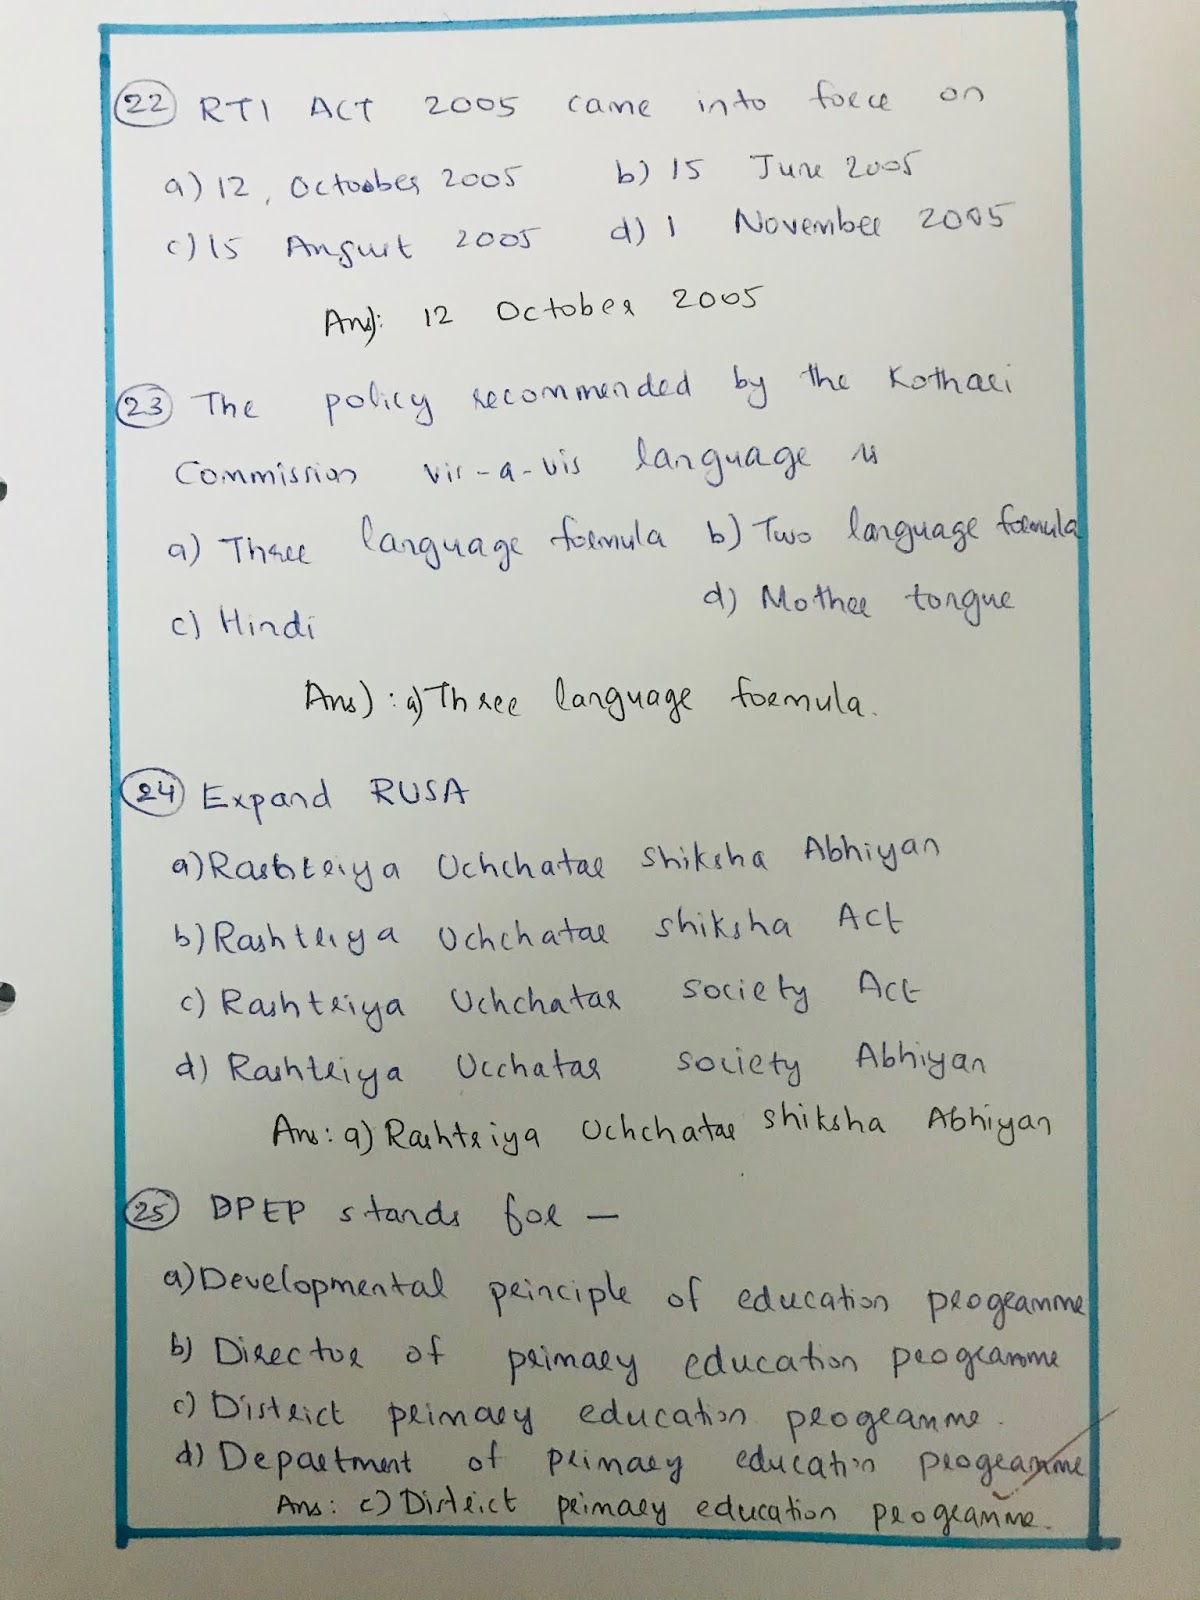 22 RTI ACT 2005 came into force on
a) 12, October 2005 b) 15 June 2005
c) 15 August 2005 d) 1 November 2005
Ans): 12 October 2005
23 The policy recommended by the Kothari
Commission vis-a-vis language is
a) Three language formula b) Two language formula
c) Hindi d) Mother tongue
Ans) : a) Three language formula.
24 Expand RUSA
a) Rashtriya Uchchatar Shiksha Abhiyan
b) Rashtriya Uchchatar shiksha Act
c) Rashtriya Uchchatar society Act
d) Rashtriya Ucchatar society Abhiyan
Ans: a) Rashtriya Uchchatar Shiksha Abhiyan
25 DPEP stands for —
a) Developmental principle of education programme
b) Director of primary education programme
c) District primary education programme.
d) Department of primary education programme
Ans: c) District primary education programme.